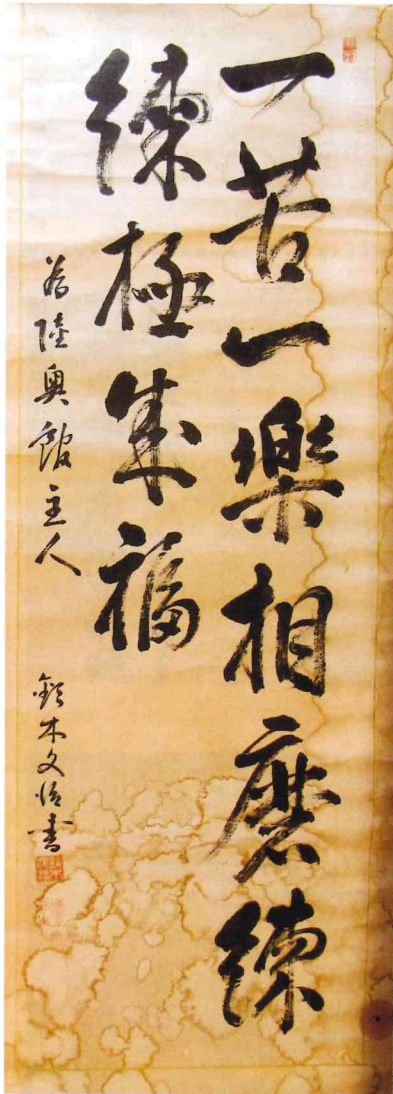 一苦一樂相磨練
練極成福
為陸奥館主人 鈴木文治書